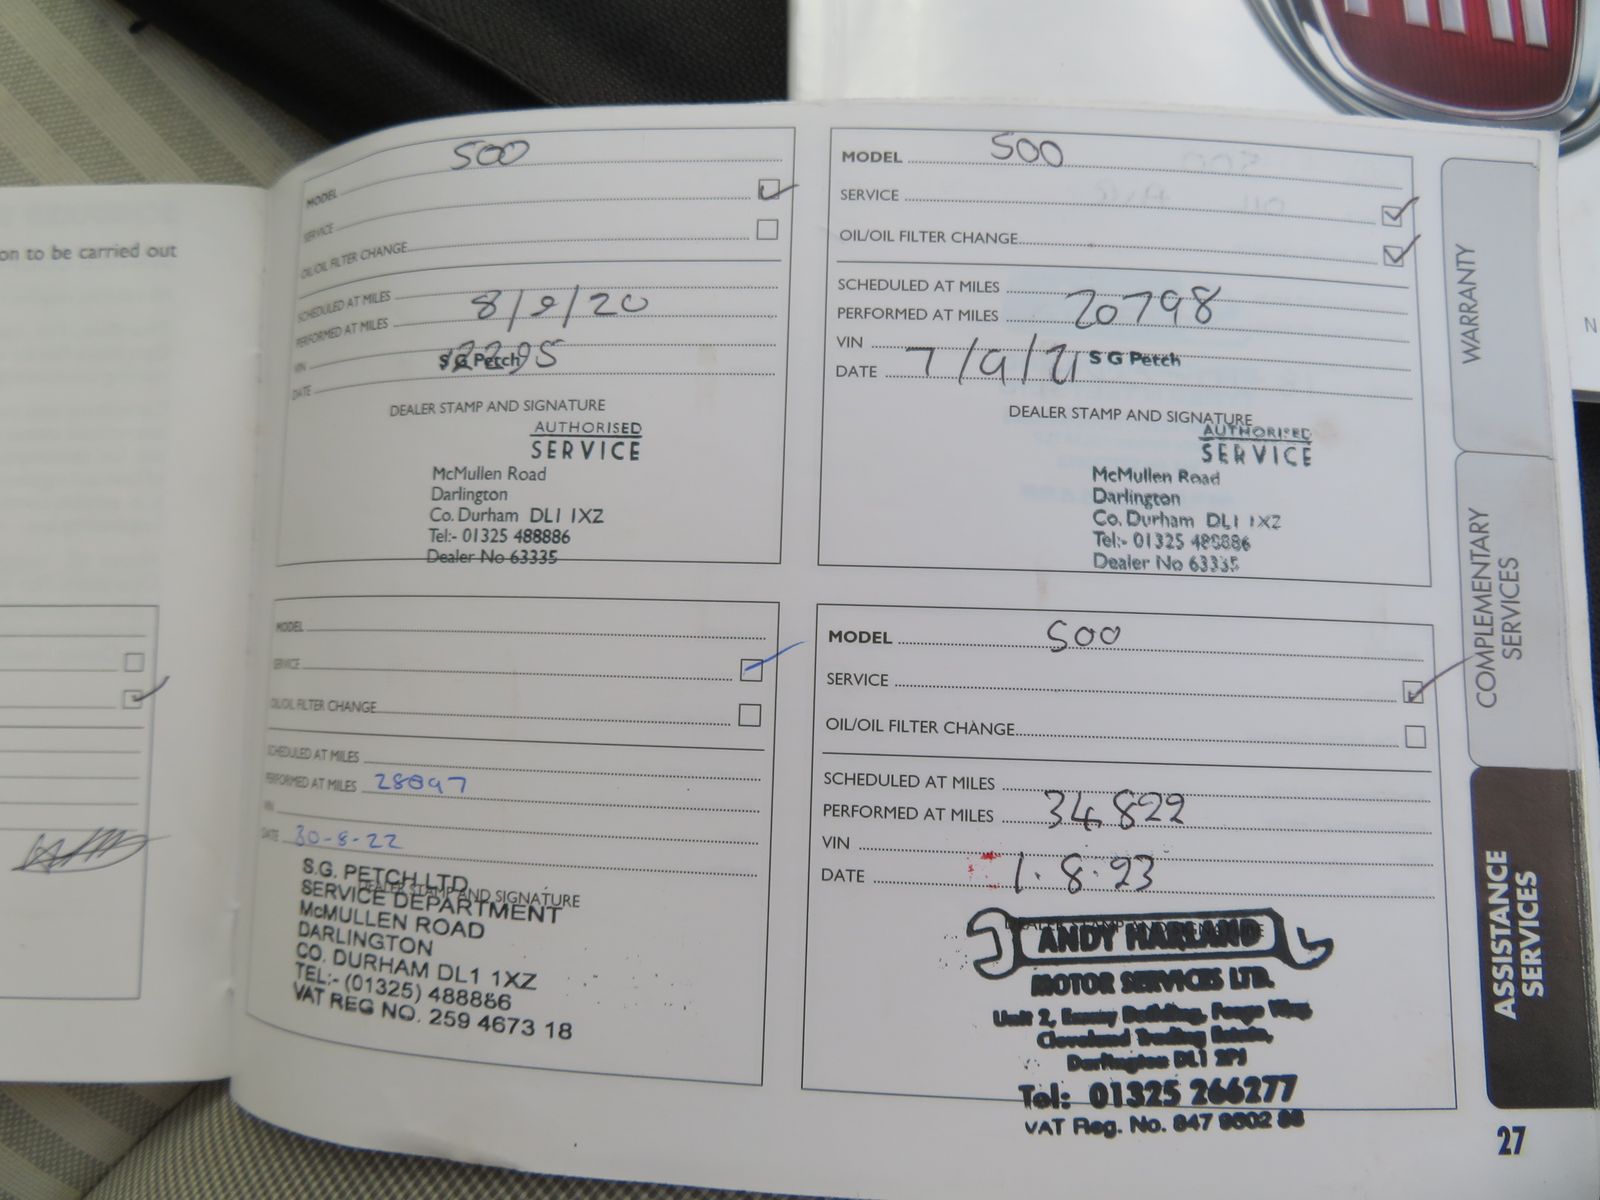 on to be carried out
MODEL 500
SERVICE
OIL/OIL FILTER CHANGE
SCHEDULED AT MILES
PERFORMED AT MILES 8/9/20
VIN
S G Petch
DATE
DEALER STAMP AND SIGNATURE
AUTHORISED
SERVICE
McMullen Road
Darlington
Co. Durham DL1 1XZ
Tel:- 01325 488886
Dealer No 63335
MODEL 500
SERVICE
OIL/OIL FILTER CHANGE
SCHEDULED AT MILES
PERFORMED AT MILES 20798
VIN
DATE 7/9/21 S G Petch
DEALER STAMP AND SIGNATURE
AUTHORISED
SERVICE
McMullen Road
Darlington
Co. Durham DL1 1XZ
Tel:- 01325 488886
Dealer No 63335
MODEL
SERVICE
OIL/OIL FILTER CHANGE
SCHEDULED AT MILES
PERFORMED AT MILES 28897
VIN
DATE 30-8-22
S.G. PETCH LTD
DEALER STAMP AND SIGNATURE
SERVICE DEPARTMENT
McMULLEN ROAD
DARLINGTON
CO. DURHAM DL1 1XZ
TEL:- (01325) 488886
VAT REG NO. 259 4673 18
MODEL 500
SERVICE
OIL/OIL FILTER CHANGE
SCHEDULED AT MILES
PERFORMED AT MILES 34822
VIN
DATE 1.8.23
ANDY HARLAND
MOTOR SERVICES LTD.
Unit 2, Building, Forge Way,
Cleveland Trading Estate,
Darlington DL1 2PJ
Tel: 01325 266277
VAT Reg. No. 847 9602
WARRANTY
COMPLEMENTARY
SERVICES
ASSISTANCE
SERVICES
27
N